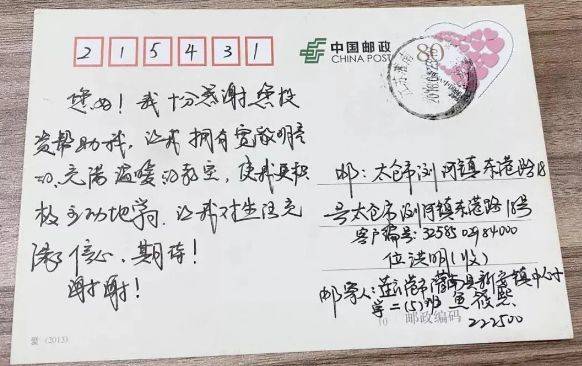 215431
中国邮政
CHINA POST
80
您好！我十分感谢您投
资帮助我，让我拥有宽敞明亮
充满温暖的教室，使我更积
极主动地学习，让我对生活充
满了信心，期待！
谢谢！
邮：太仓市浏河镇东港路18
号太仓市浏河镇东港路18号
客户编号：3258502984000
位洪明（收）
邮寄人：连云港市灌南县新安镇中心小
学二（5）班 熙
邮政编码
222500
爱（2013）